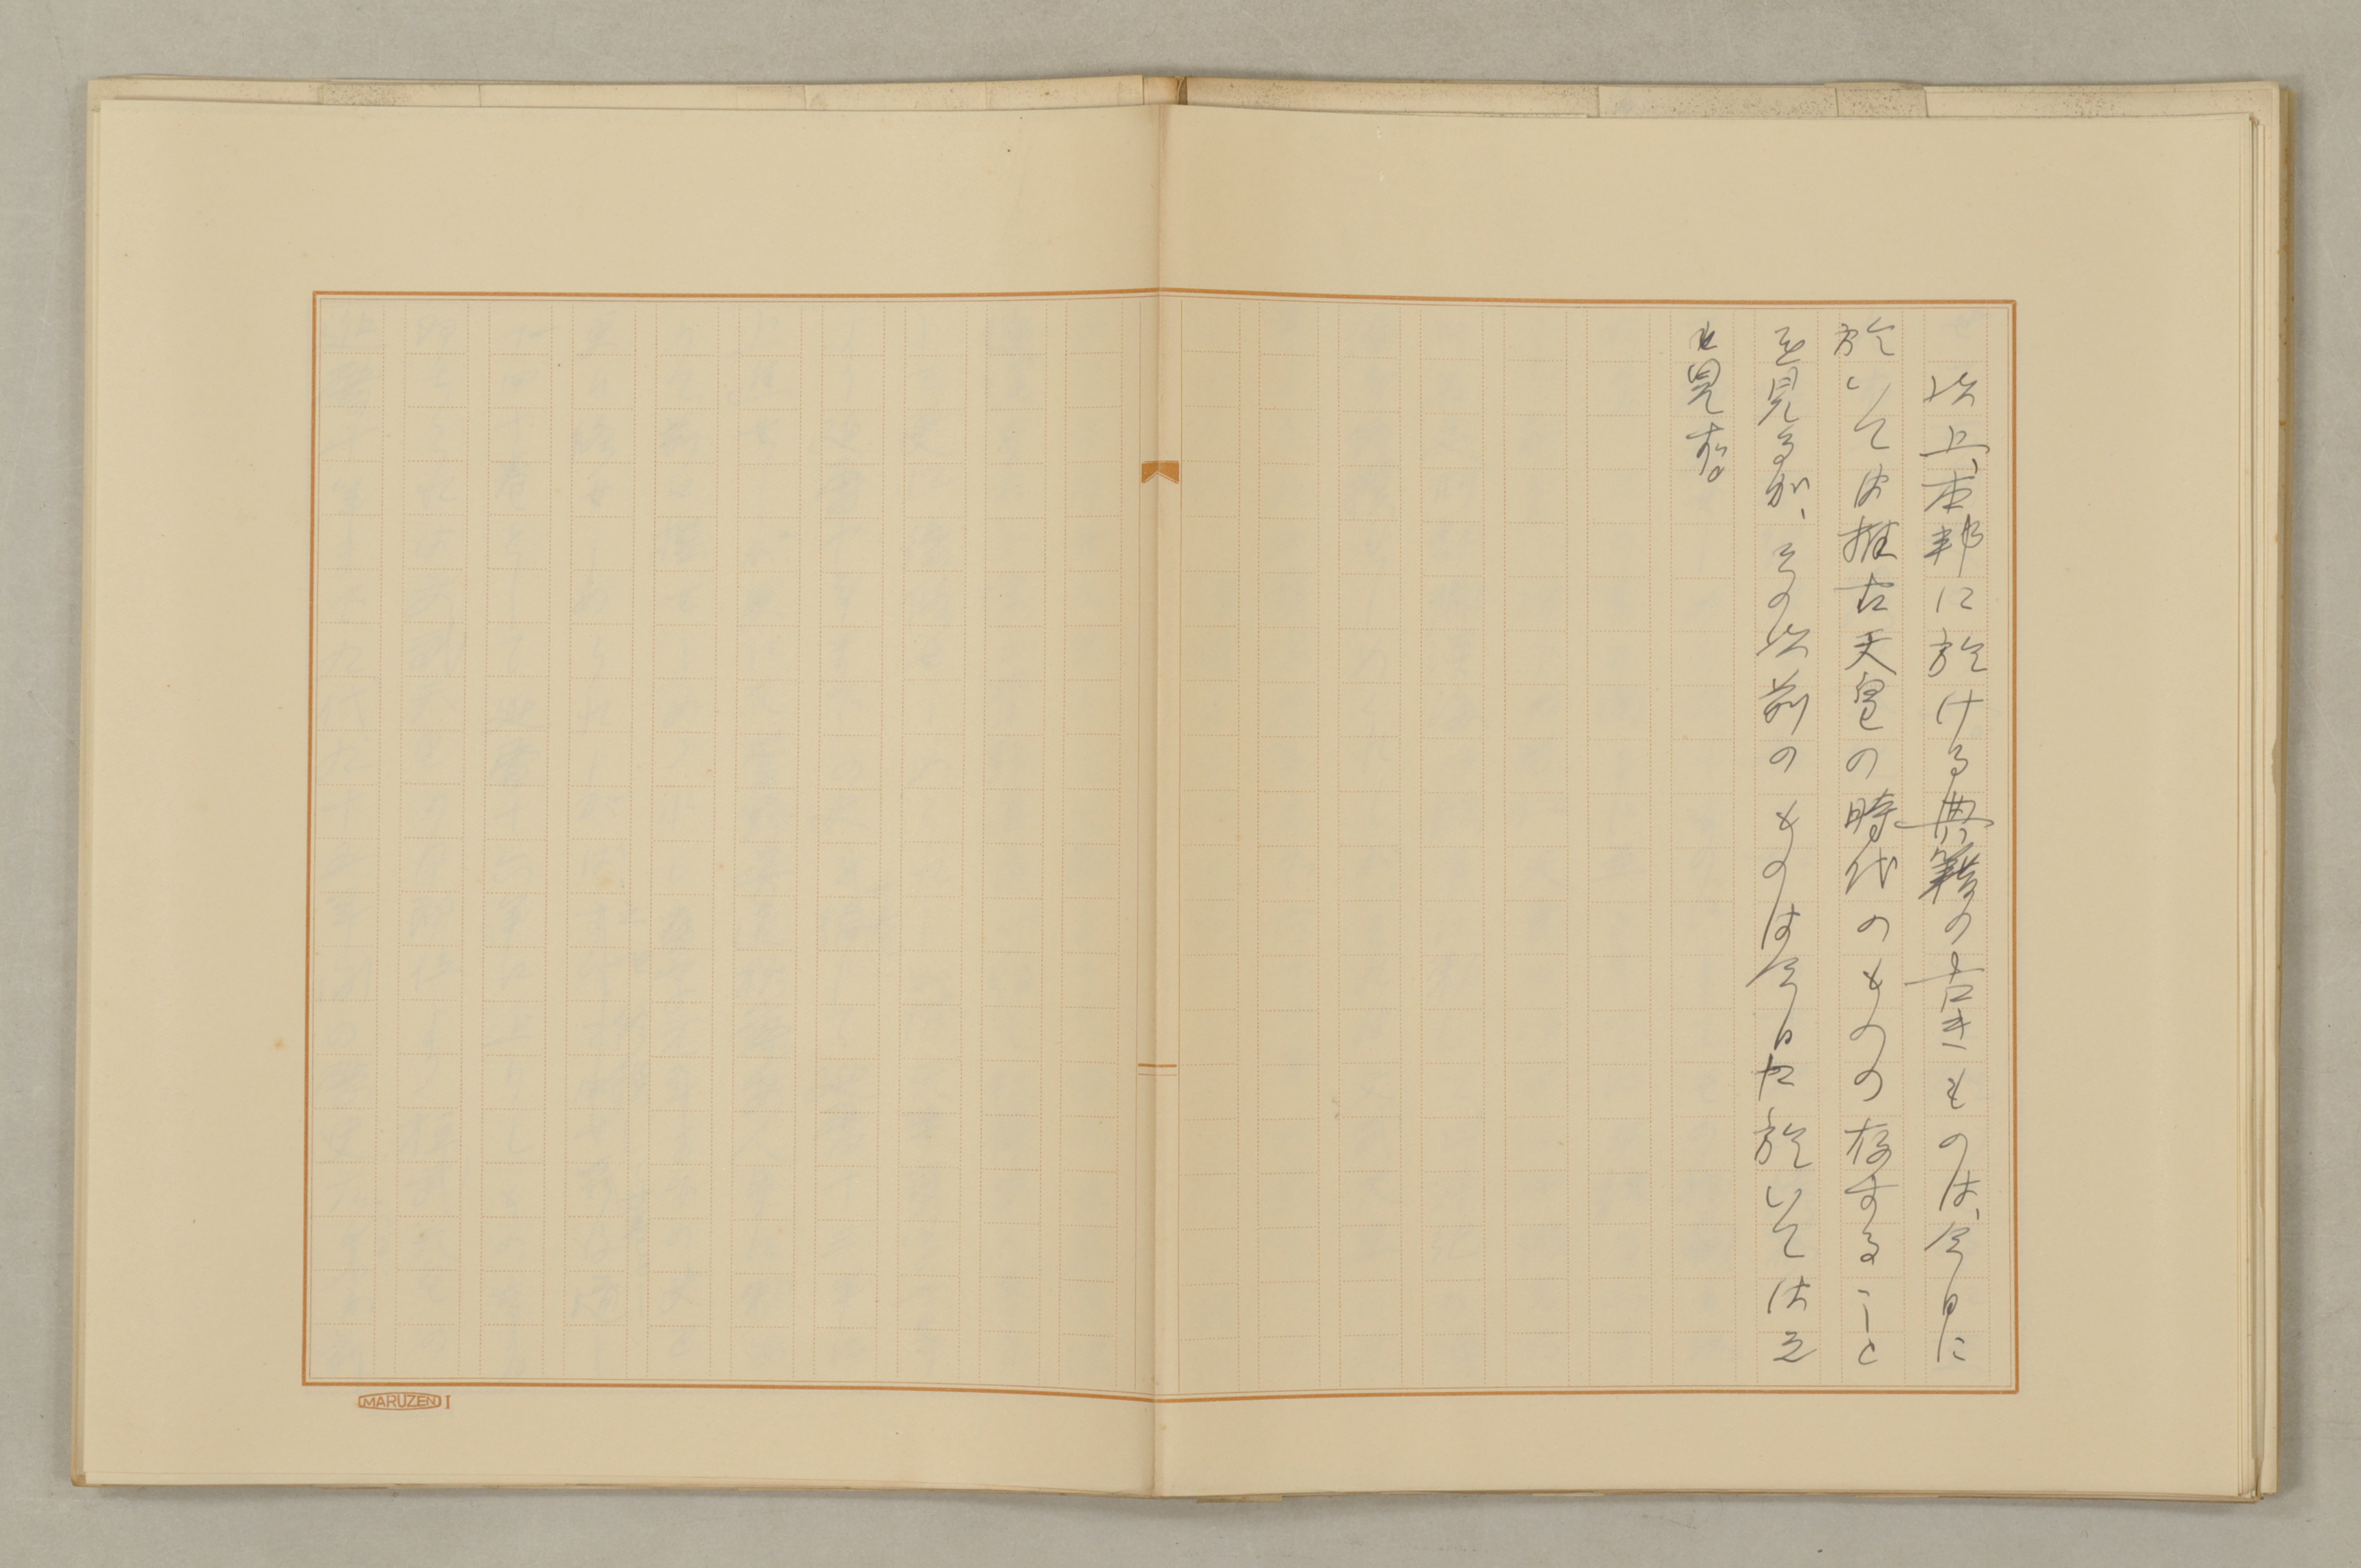 以上、本邦に於ける典籍の古きものは、今日に
於いては推古天皇の時代のものの存すること
を見るが、その以前のものは今日に於いては之
を見ず。
MARUZEN I